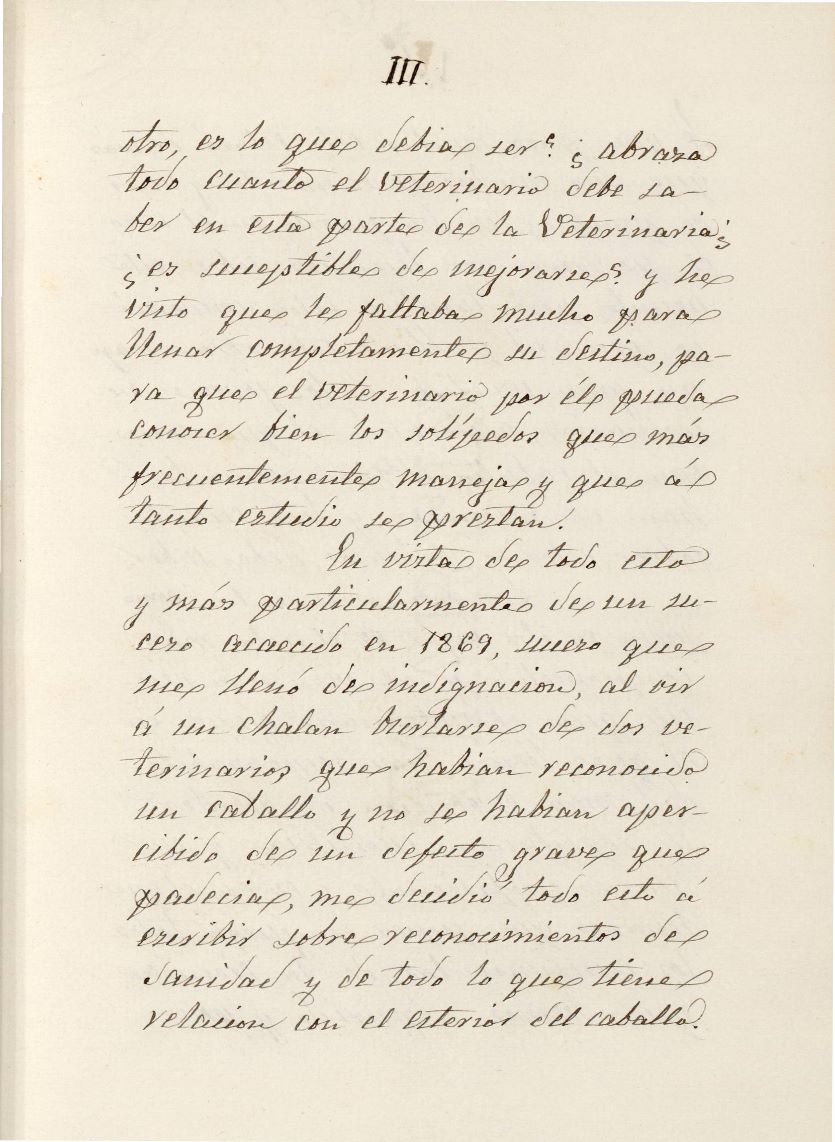 III.
otro, es lo que debia ser? ¿ abraza
todo cuanto el veterinario debe sa-
ber en esta parte de la Veterinaria?
¿ es suceptible de mejorarse? y he
visto que le faltaba mucho para
llenar completamente su destino, pa-
ra que el veterinario por él pueda
conocer bien los solípedos que más
frecuentemente maneja y que á
tanto estudio se prestan.
En vista de todo esto
y más particularmente de un su-
ceso acaecido en 1869, suceso que
me llenó de indignacion, al oir
á un chalan burlarse de dos ve-
terinarios que habian reconocido
un caballo y no se habian aper-
cibido de un defecto grave que
padecia, me decidió todo esto á
escribir sobre reconocimientos de
sanidad y de todo lo que tiene
relacion con el esterior del caballo.